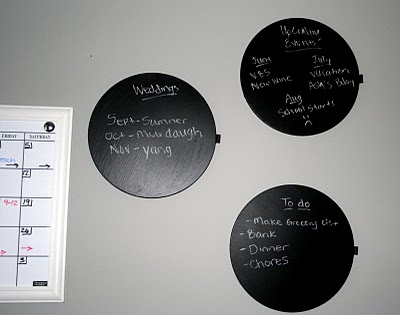 FRIDAY SATURDAY
5
12
9-12 19
26
Weddings
Sept - Summer
Oct - Murdaugh
Nov - Yang
Upcoming
Events!
June
VBS
New Wine
July
Vacation
Aug
School Starts
To do
- Make Grocery List
- Bank
- Dinner
- Chores